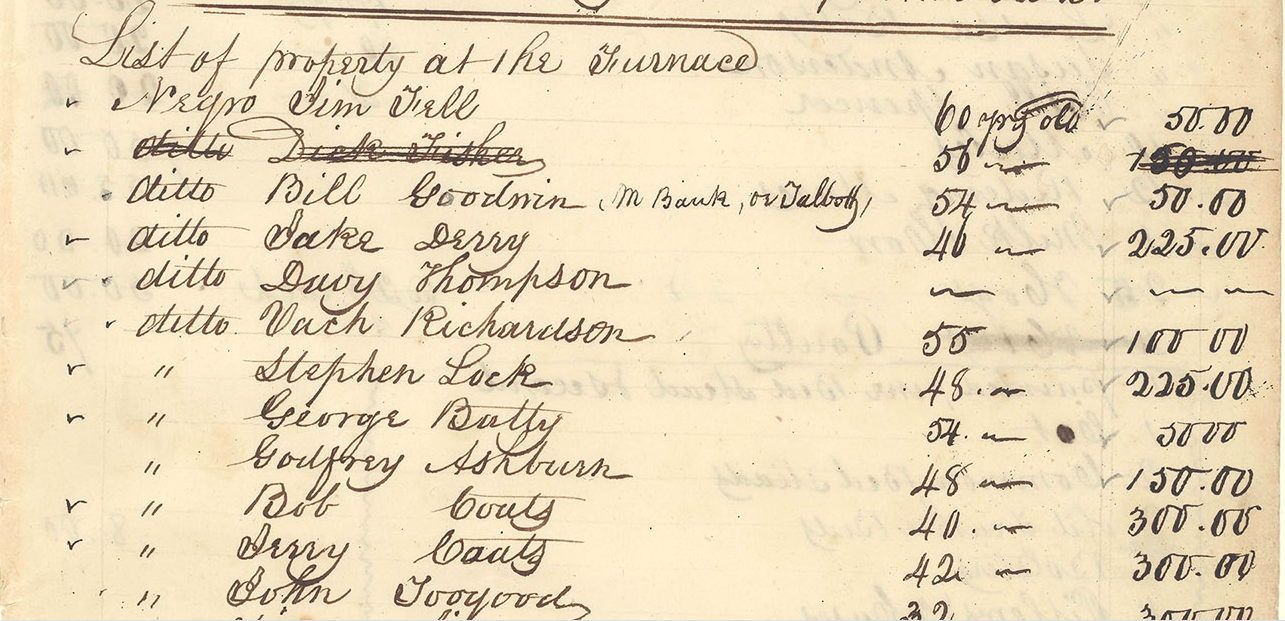 List of property at the Furnace
Negro Jim Fell 60 yrs old 50.00
ditto Dick Fisher 56 "
ditto Bill Goodwin (M Bank, or Talbott) 54 " 50.00
ditto Jake Derry 40 " 225.00
ditto Davy Thompson " " "
ditto Vach Richardson 55 100 00
" Stephen Lock 48. " 225.00
" George Batty 54. " 50 00
" Godfrey Ashburn 48 " 150.00
" Bob Coats 40. " 300.00
" Jerry Coats 42 " 300.00
" John Toogood 32 300.00